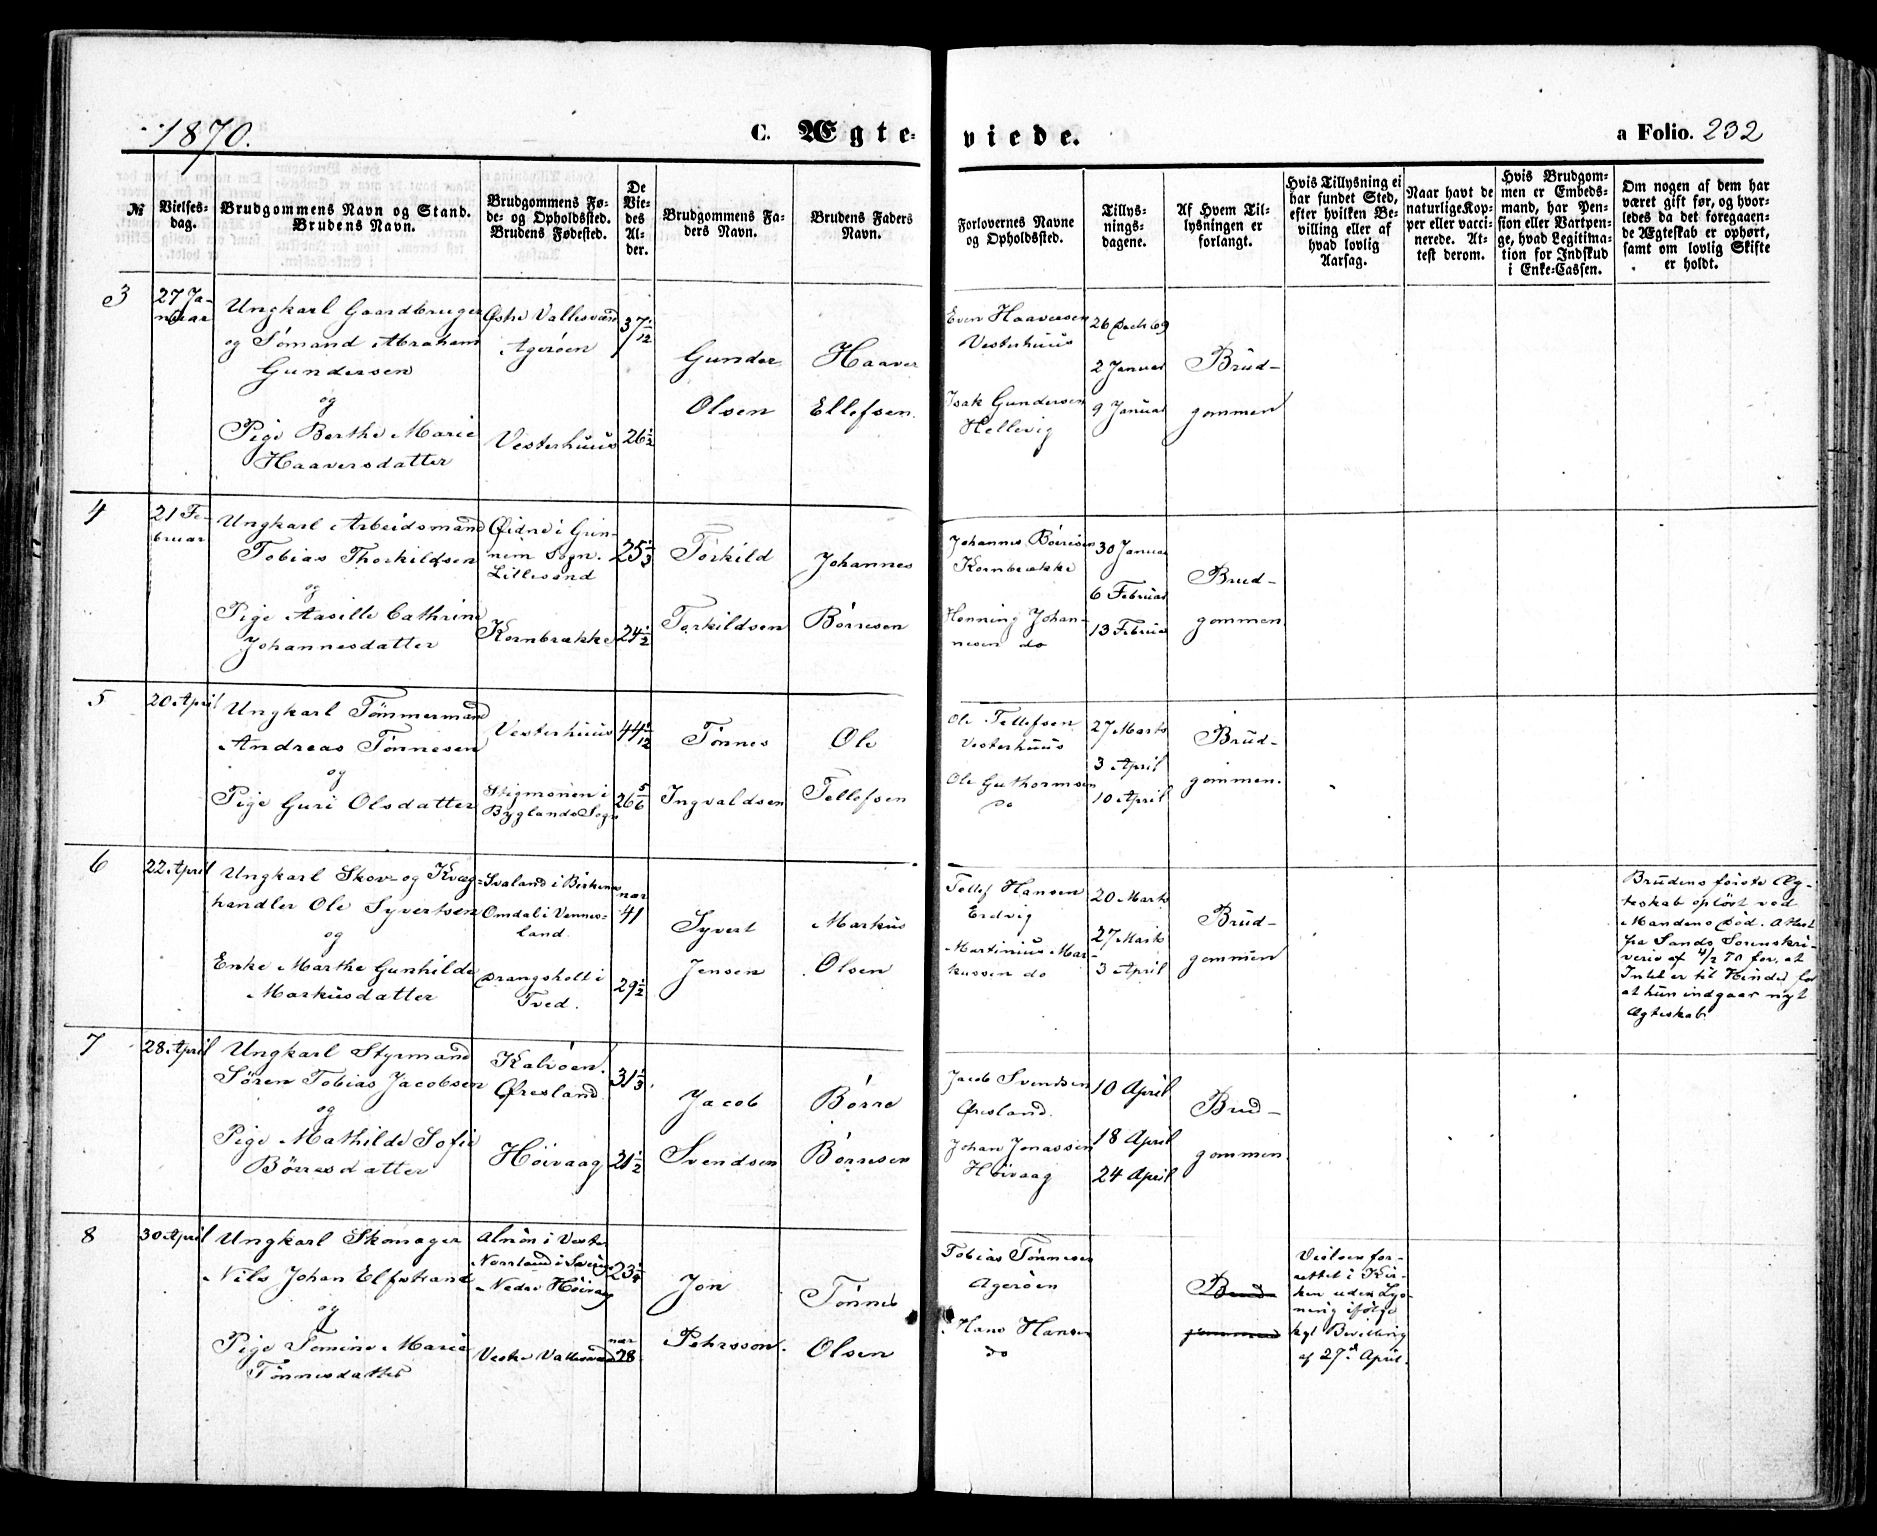 1870.
C. Ægte-
viede.
a Folio. 232
№
Vielses-
dag.
Brudgommens Navn og Stand.
Brudens Navn.
Brudgommens Fø-
de- og Opholdssted.
Brudens Fødested.
De
Vie-
des
Al-
der.
Brudgommens Fa-
ders Navn.
Brudens Faders
Navn.
Forlovernes Navne
og Opholdssted.
Tillys-
nings-
dagene.
Af Hvem Til-
lysningen er
forlangt.
Hvis Tillysning ei
har fundet Sted,
efter hvilken Be-
villing eller af
hvad lovlig
Aarsag.
Naar havt de
naturlige Kop-
per eller vacci-
nerede. At-
test derom.
Hvis Brudgom-
men er Embeds-
mand, har Pen-
sion eller Vartpen-
ge, hvad Legitima-
tion for Indskud
i Enke-Cassen.
Om nogen af dem har
været gift før, og hvor-
ledes da det foregaaen-
de Ægteskab er ophørt,
samt om lovlig Skifte
er holdt.
3
27 Ja-
nuar
Ungkarl Gaardbruger
og Sømand Abraham
Gundersen
og
Pige Berthe Marie
Haaversdatter
Østre Vallesværd
Agerøen
Vesterhuus
37 1/12
26 1/2
Gunder
Olsen
Haaver
Ellefsen.
Even Haaversen
Vesterhuus
Isak Gundersen
Hellevig
26 Decb 69
2 Januar
9 Januar
Brud-
gommen
4
21 Fe-
bruar
Ungkarl Arbeidsmand
Tobias Thorkildsen
og
Pige Aasille Cathrine
Johannesdatter
Øidne i Grin-
nem Sogn.
Lillesand
Kornbrække
25 1/3
24 1/2
Torkild
Torkildsen
Johannes
Børresen
Johannes Børresen
Kornbrække
Henning Johan-
nesen do
30 Januar
6 Februar
13 Februar
Brud-
gommen
5
20 April
Ungkarl Tømmermand
Andreas Tønnesen
og
Pige Guri Olsdatter
Vesterhuus
Stigmonen i
Byglands Sogn
44 1/12
26 5/6
Tønnes
Ingvaldsen
Ole
Tellefsen
Ole Tellefsen
Vesterhuus
Ole Guthormsen
Do
27 Marts
3 April
10 April
Brud-
gommen.
6
22 April
Ungkarl Skov- og Kvæg-
handler Ole Syvertsen
og
Enke Marthe Gunhilde
Markusdatter
Svaland i Birkenes
Omdal i Vennes-
land.
Drangsholt i
Tved.
nær
41
29 1/2
Syvert
Jensen
Markus
Olsen
Tellef Hansen
Erdvig
Martinius Mar-
kussen do
20 Marts
27 Marts
3 April
Brud-
gommen
Brudens første Æg-
teskab opløst ved
Mandens Død. Attest
fra Sands Sorenskri-
verie af 4/2 70 for, at
Intet er til Hinder for
at hun indgaar nyt
Ægteskab
7
28 April
Ungkarl Styrmand
Søren Tobias Jacobsen
og
Pige Mathilde Sofie
Børresdatter
Kalvøen.
Øresland
Høivaag
31 1/3
21 1/2
Jacob
Svendsen
Børre
Børresen
Jacob Svendsen
Øresland.
Johan Jonassen
Høivaag
10 April
18 April
24 April
Brud-
gommen
8
30 April
Ungkarl Skomager
Nils Johan Elfstrand
og
Pige Tomine Marie
Tønnesdatter
Alnön i Vester
Norrland i Sverige
Nedre Høivaag
Vestre Vallesværd
23 1/4
nær
28
Jon
Pehrsson.
Tønnes
Olsen
Tobias Tønnesen
Agerøen
Hans Hansen
do
Brud-
gommen
Vielsen for-
rettet i Kir-
ken uden Lys-
ning ifølge
kgl Bevilling
af 27de April.